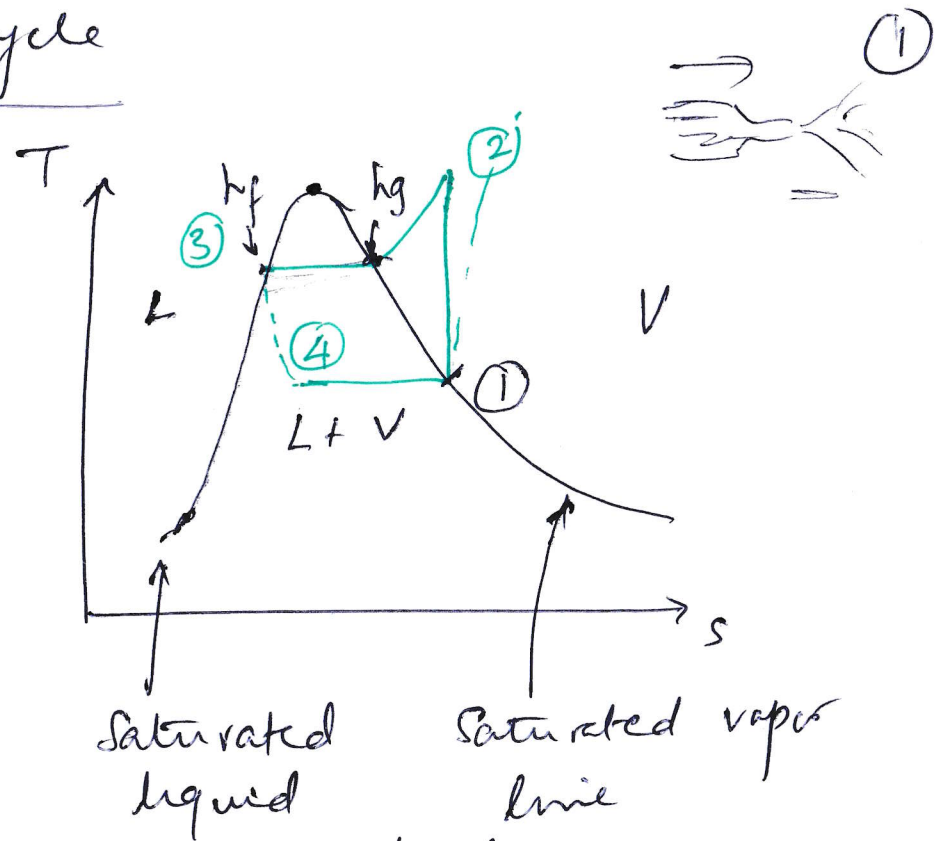 ycle
①
T
hf
hg
②
③
L
V
④
①
L + V
s
Saturated
liquid
Saturated vapor
line